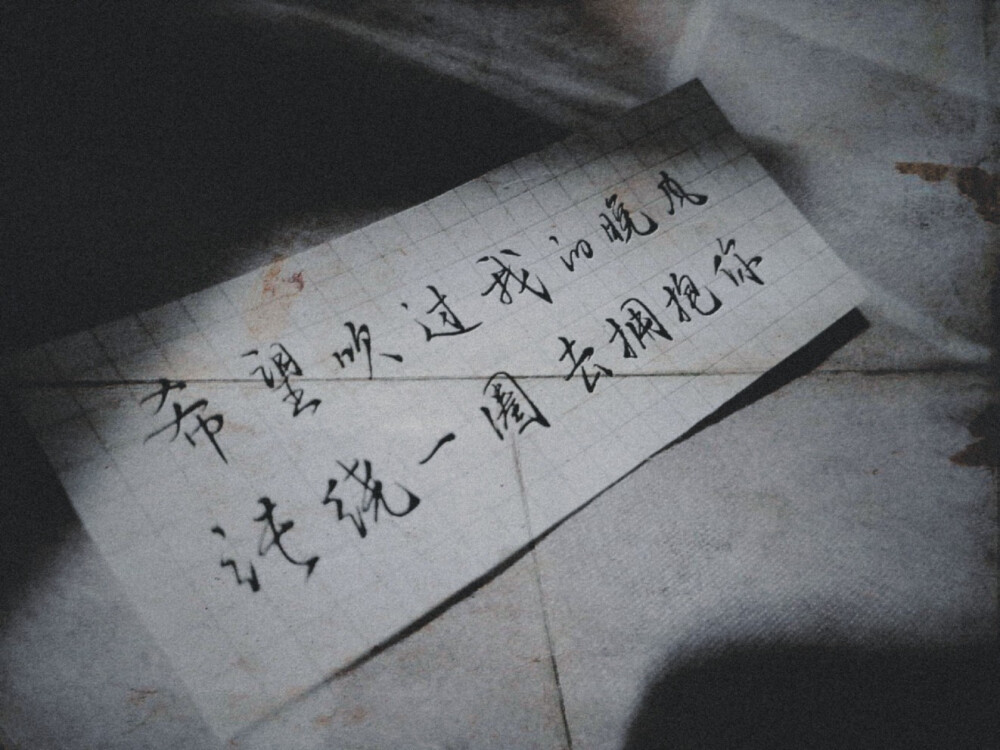 希望吹过我的晚风
能绕一圈去拥抱你